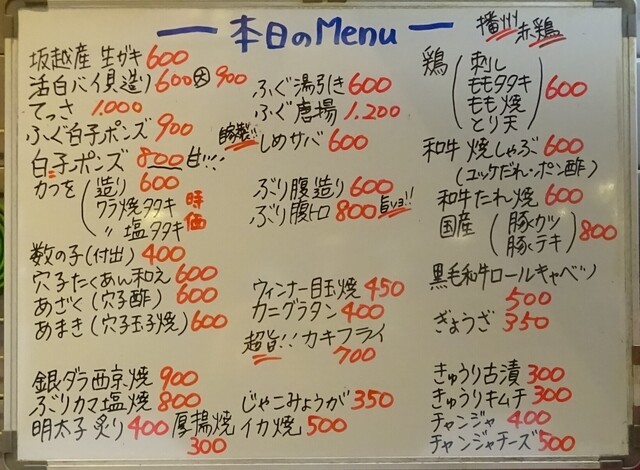 本日のMenu
坂越産 生ガキ 600
活白バイ貝造り 600 大 900
てっさ 1.000
ふぐ白子ポンズ 900
白子ポンズ 800 甘!!!
カツを
造り 600
ワラ焼タタキ
〃 塩タタキ
時価
数の子(付出) 400
穴子たくあん和え 600
あざく(穴子酢) 600
あまき(穴子玉子焼) 600
銀ダラ西京焼 900
ぶりカマ塩焼 800
明太子 炙り 400
厚揚焼 300
ふぐ湯引き 600
ふぐ唐揚 1.200
自家製!! しめサバ 600
ぶり腹造り 600
ぶり腹トロ 800 旨いヨ!!
ウィンナー目玉焼 450
カニグラタン 400
超旨!! カキフライ
700
じゃこみょうが 350
イカ焼 500
播州赤鶏
鶏
刺し
ももタタキ
もも焼
とり天
600
和牛 焼しゃぶ 600
(ユッケだれ・ポン酢)
和牛たれ焼 600
国産
豚カツ
豚テキ
800
黒毛和牛ロールキャベツ
500
ぎょうざ 350
きゅうり古漬 300
きゅうりキムチ 300
チャンジャ 400
チャンジャチーズ 500